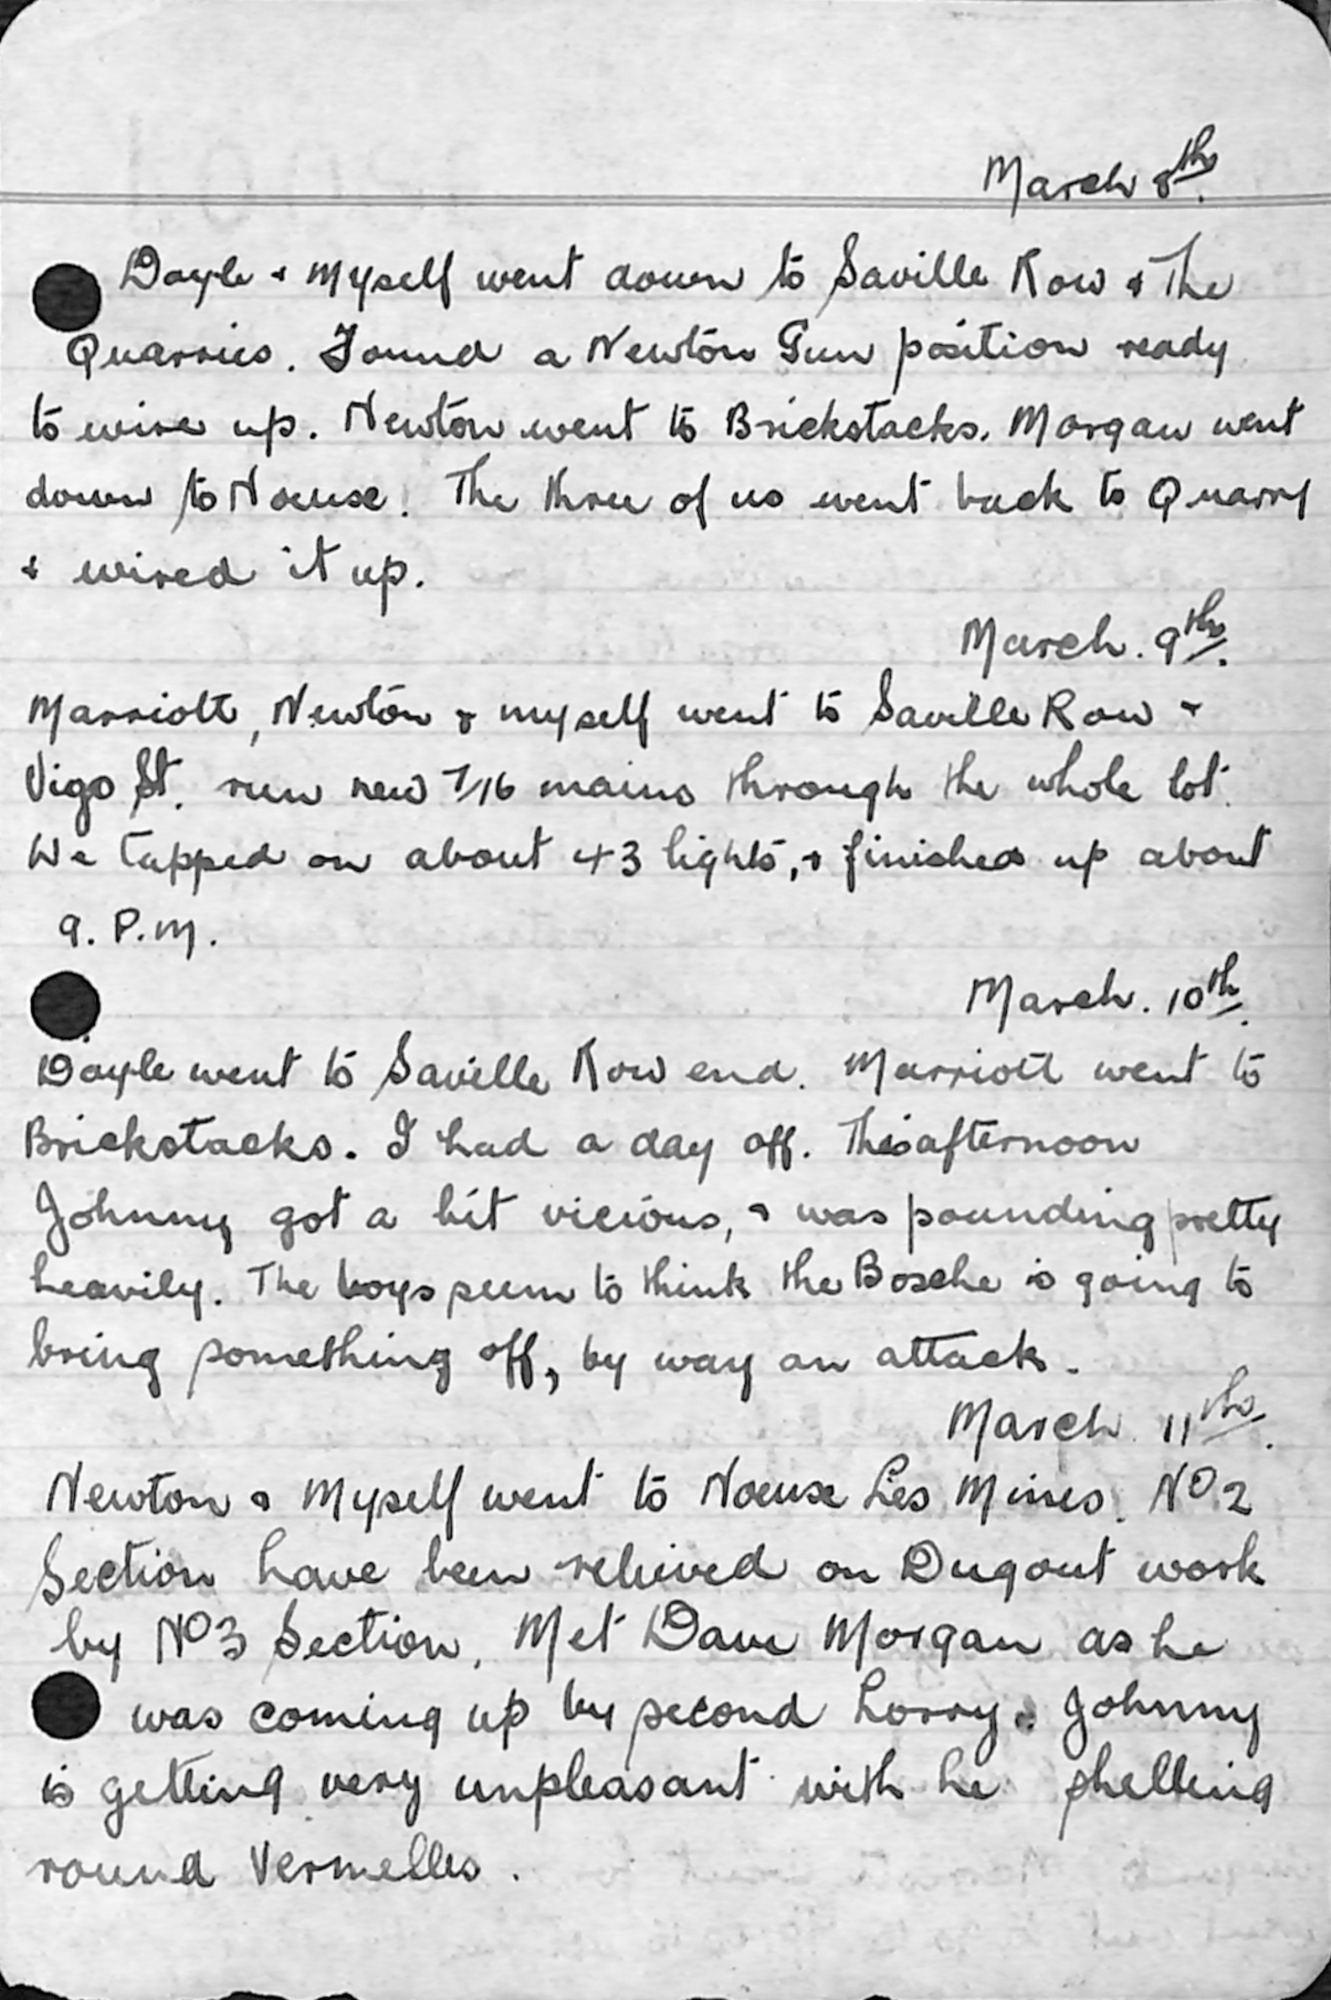 March 8th.
Doyle & Myself went down to Saville Row & The
Quarries. Found a Newton Gun position ready
to wire up. Newton went to Brickstacks. Morgan went
down to Noeuse. The three of us went back to Quarry
& wired it up.
March. 9th.
Marriott, Newton & myself went to Saville Row &
Vigo St. run new 7/16 mains through the whole lot.
We tapped on about 43 lights, & finished up about
9. P.M.
March. 10th.
Doyle went to Saville Row end. Marriott went to
Brickstacks. I had a day off. This afternoon
Johnny got a bit vicious, & was pounding pretty
heavily. The boys seem to think the Bosche is going to
bring something off, by way an attack.
March 11th.
Newton & Myself went to Noeuse Les Mines. No 2
Section have been relieved on Dugout work
by No 3 Section. Met Dave Morgan as he
was coming up by second Lorry. Johnny
is getting very unpleasant with he shelling
round Vermelles.